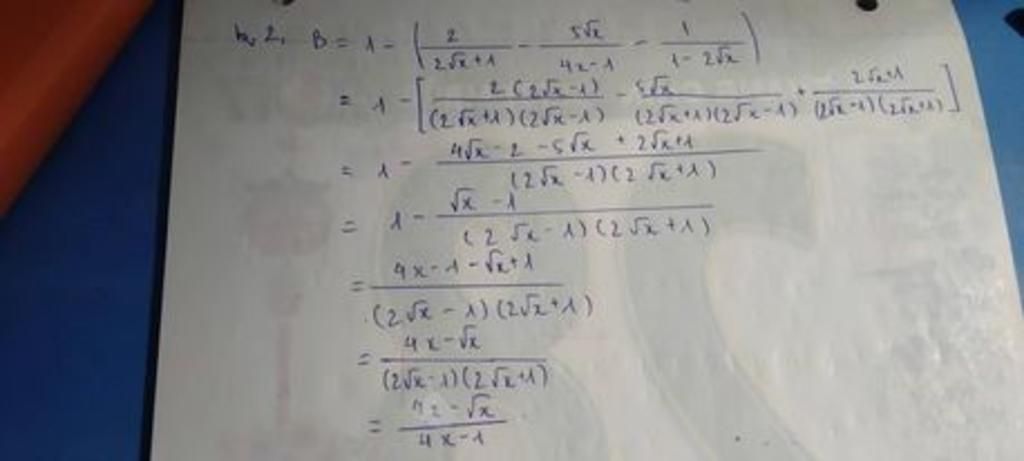 2, B = 1 - ( 2/(2√x+1) - 5√x/(4x-1) - 1/(1-2√x) )
= 1 - [ 2(2√x-1)/((2√x+1)(2√x-1)) - 5√x/((2√x+1)(2√x-1)) + (2√x+1)/((2√x-1)(2√x+1)) ]
= 1 - (4√x-2-5√x+2√x+1)/((2√x-1)(2√x+1))
= 1 - (√x-1)/((2√x-1)(2√x+1))
= (4x-1-√x+1)/((2√x-1)(2√x+1))
= (4x-√x)/((2√x-1)(2√x+1))
= -√x/(4x-1)